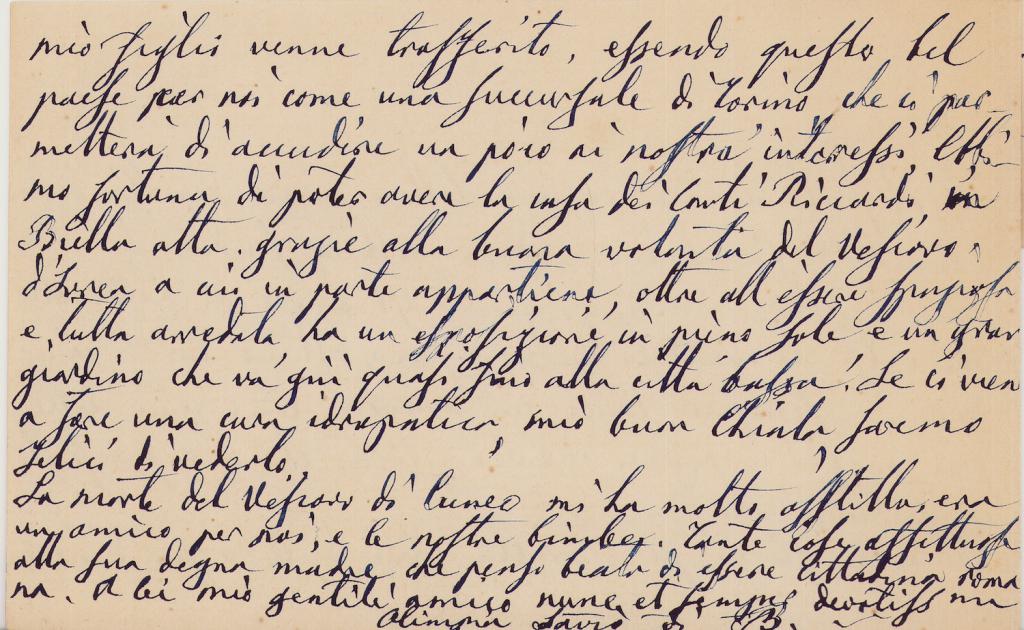 mio figlio venne trasferito, essendo questo bel
paese per noi come una succursale di Torino che ci per-
metterà di accudire un pòco ai nostri interessi,
mo fortuna di poter avere la casa dei Conti Ricardi, in
Biella alta. grazie alla buona volontà del Vescovo
d'Ivrea a cui in parte appartiene, oltre all'essere spaziosa
e, tutta arredata ha un esposizione in pieno sole e un gran
giardino che và giù quasi fino alla città bassa! Se ci vien
a fare una cura idropatica, mio buon Chiala saremo
felici di vederlo.
La morte del Vescovo di Cuneo mi ha molto afflitta, era
un amico per noi, e le nostre bimbe. Tante cose affettuose
alla sua degna madre che penso beata di essere cittadina roma
na. A lei mio gentile amico nunc et semper devotiss ma
Olimpia Savio di B.